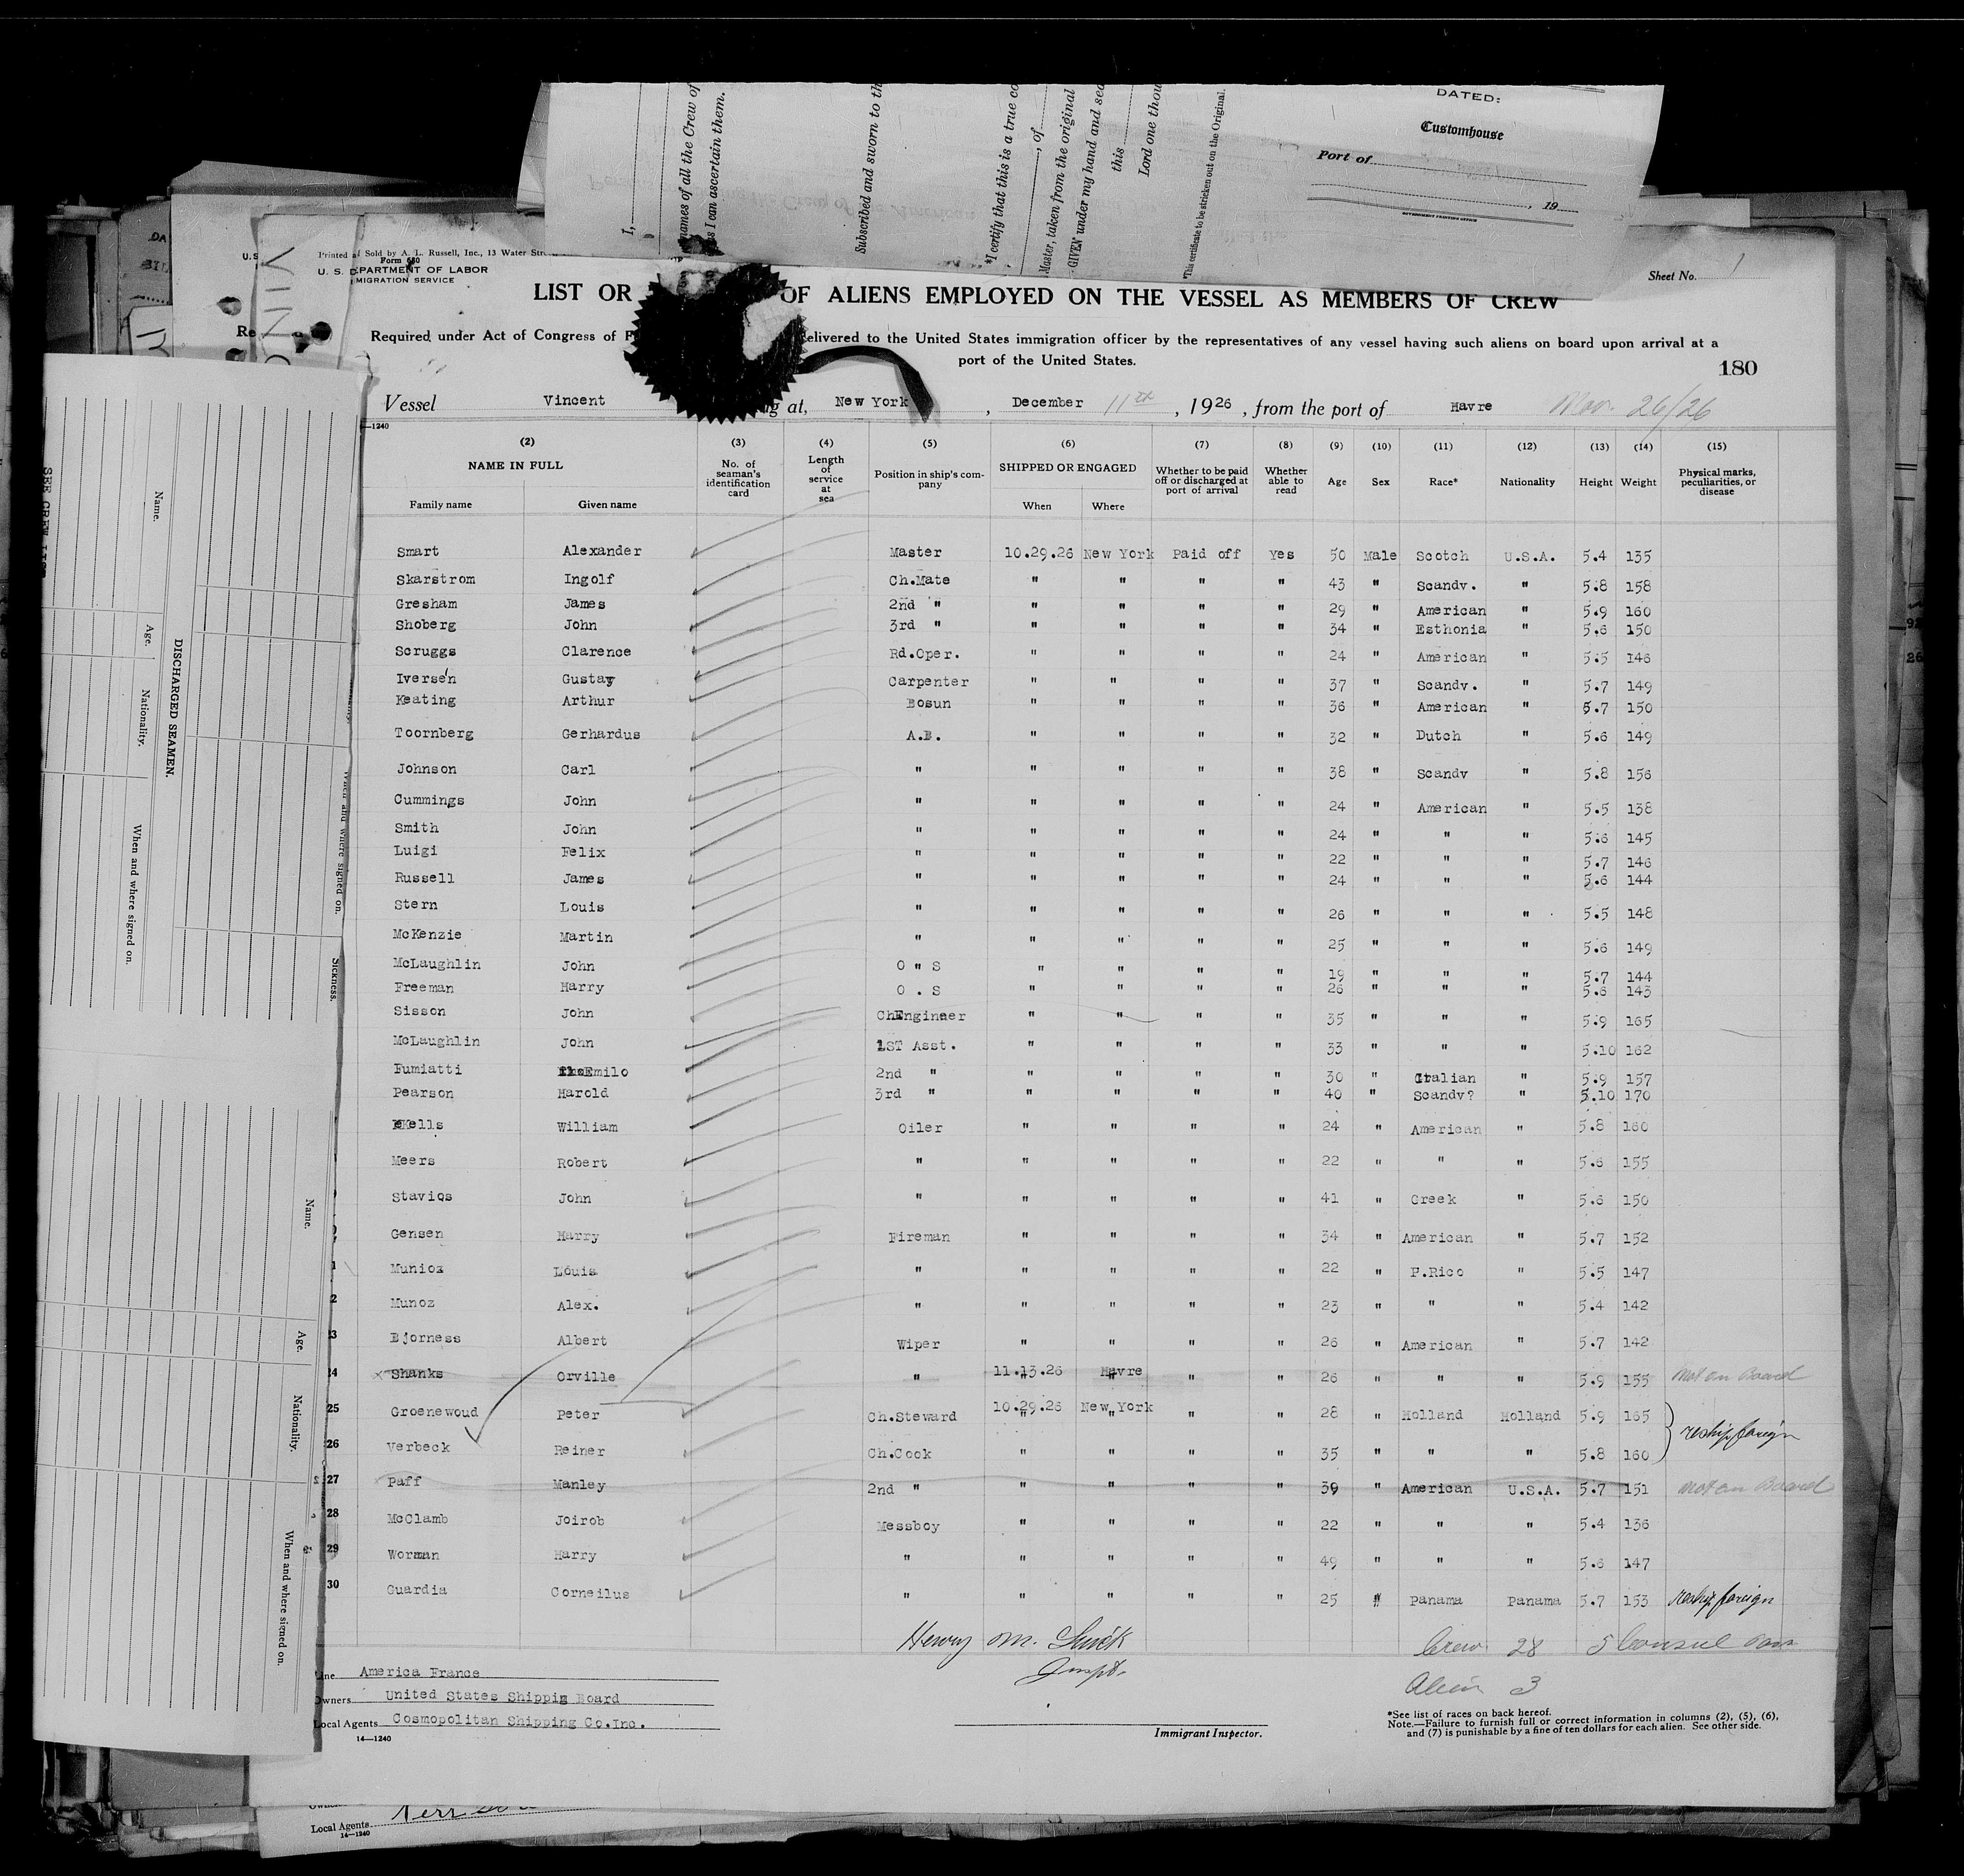 DATED:
Customhouse
Port of
, 19
GOVERNMENT PRINTING OFFICE
I,
names of all the Crew of
as I can ascertain them.
Subscribed and sworn to th
*I certify that this is a true co
, of
Master, taken from the original
GIVEN under my hand and sea
this
Lord one thou
*This certificate to be stricken out on the Original.
Sheet No. 1
Sold by A. L. Russell, Inc., 13 Water
Form 680
U. S. DEPARTMENT OF LABOR
MIGRATION SERVICE
LIST OR OF ALIENS EMPLOYED ON THE VESSEL AS MEMBERS OF CREW
Required under Act of Congress of elivered to the United States immigration officer by the representatives of any vessel having such aliens on board upon arrival at a
port of the United States.
180
Vessel Vincent at, New York, December 11th, 1926, from the port of Havre Nov. 26/26
—1240
(2) (3) (4) (5) (6) (7) (8) (9) (10) (11) (12) (13) (14) (15)
NAME IN FULL No. of seaman's identification card Length of service at sea Position in ship's company SHIPPED OR ENGAGED Whether to be paid off or discharged at port of arrival Whether able to read Age Sex Race* Nationality Height Weight Physical marks, peculiarities, or disease
Family name Given name When Where
Smart Alexander Master 10.29.26 New York Paid off Yes 50 Male Scotch U.S.A. 5.4 135
Skarstrom Ingolf Ch.Mate " " " " 43 " Scandv. " 5.8 158
Gresham James 2nd " " " " " 29 " American " 5.9 160
Shoberg John 3rd " " " " " 34 " Esthonia " 5.6 150
Scruggs Clarence Rd.Oper. " " " " 24 " American " 5.5 146
Iversen Gustav Carpenter " " " " 37 " Scandv. " 5.7 149
Keating Arthur Bosun " " " " 36 " American " 5.7 150
Toornberg Gerhardus A.B. " " " " 32 " Dutch " 5.6 149
Johnson Carl " " " " " 38 " Scandv " 5.8 156
Cummings John " " " " " 24 " American " 5.5 138
Smith John " " " " " 24 " " " 5.6 145
Luigi Felix " " " " " 22 " " " 5.7 146
Russell James " " " " " 24 " " " 5.6 144
Stern Louis " " " " " 26 " " " 5.5 148
McKenzie Martin " " " " " 25 " " " 5.6 149
McLaughlin John O " S " " " " 19 " " " 5.7 144
Freeman Harry O . S " " " " 26 " " " 5.6 143
Sisson John ChEngineer " " " " 35 " " " 5.9 165
McLaughlin John 1ST Asst. " " " " 33 " " " 5.10 162
Fumiatti Emilo 2nd " " " " " 30 " Italian " 5.9 157
Pearson Harold 3rd " " " " " 40 " Scandv? " 5.10 170
Kells William Oiler " " " " 24 " American " 5.8 160
Meers Robert " " " " " 22 " " " 5.6 155
Stavios John " " " " " 41 " Greek " 5.6 150
Gensen Harry Fireman " " " " 34 " American " 5.7 152
Munioz Louis " " " " " 22 " P.Rico " 5.5 147
Munoz Alex. " " " " " 23 " " " 5.4 142
Bjorness Albert Wiper " " " " 26 " American " 5.7 142
Shanks Orville " 11.13.26 Havre " " 26 " " " 5.9 155 not on Board
25 Groenewoud Peter Ch.Steward 10.29.26 New York " " 28 " Holland Holland 5.9 165
reship foreign
26 Verbeck Reiner Ch.Cook " " " " 35 " " " 5.8 160
27 Paff Manley 2nd " " " " " 39 " American U.S.A. 5.7 151 not on Board
28 McClamb Joirob Messboy " " " " 22 " " " 5.4 136
29 Worman Harry " " " " " 49 " " " 5.6 147
30 Guardia Corneilus " " " " " 25 " Panama Panama 5.7 153 reship foreign
Henry M.
Inspt.
Crew 28 5 Consul
Alien 3
Line America France
Owners United States Shippig Board
Local Agents Cosmopolitan Shipping Co.Inc.
14—1240
Immigrant Inspector.
*See list of races on back hereof.
Note.—Failure to furnish full or correct information in columns (2), (5), (6),
and (7) is punishable by a fine of ten dollars for each alien. See other side.
SEE CREW LIST
DISCHARGED SEAMEN.
Name.
Age.
Nationality.
When and where signed on.
When and where signed on.
Sickness.
Name.
Age.
Nationality.
When and where signed on.
Local Agents
14—1240